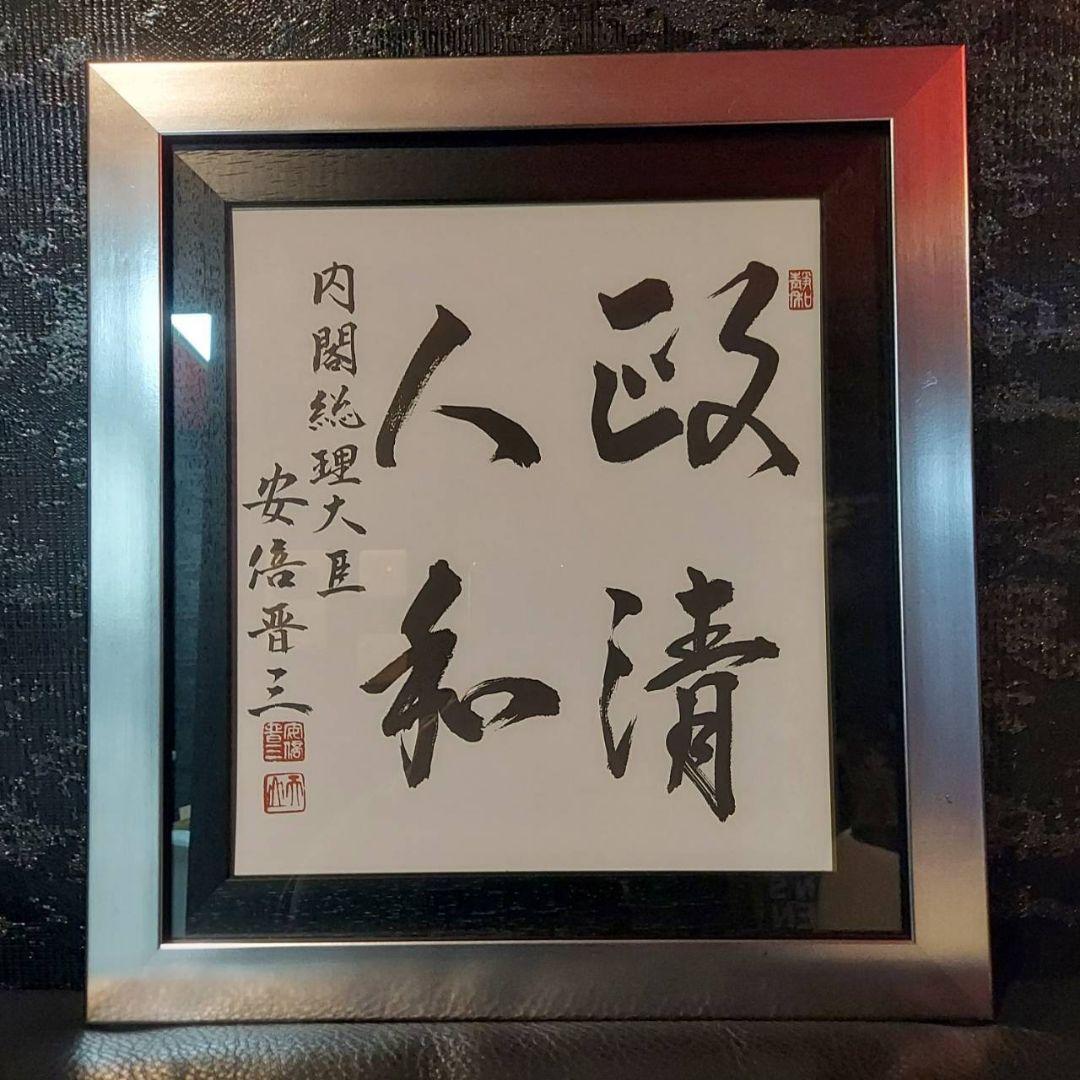 政清
人和
内閣総理大臣
安倍晋三
安倍晋三